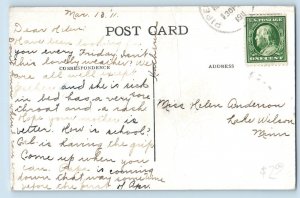 Mar. 13. 11.
POST CARD
Dear Helen
Have been
you every Friday. Isn't
this lovely weather? We
CORRESPONDENCE
ADDRESS
are all well except
and she is sick
in bed has a very sore
throat and
Hope your mother is
better. How is school?
is having the grip
Come up when you
can. is coming
down that way sometime
before the first of Apr.
Miss Helen Anderson
Lake Wilson
Minn
ONE CENT